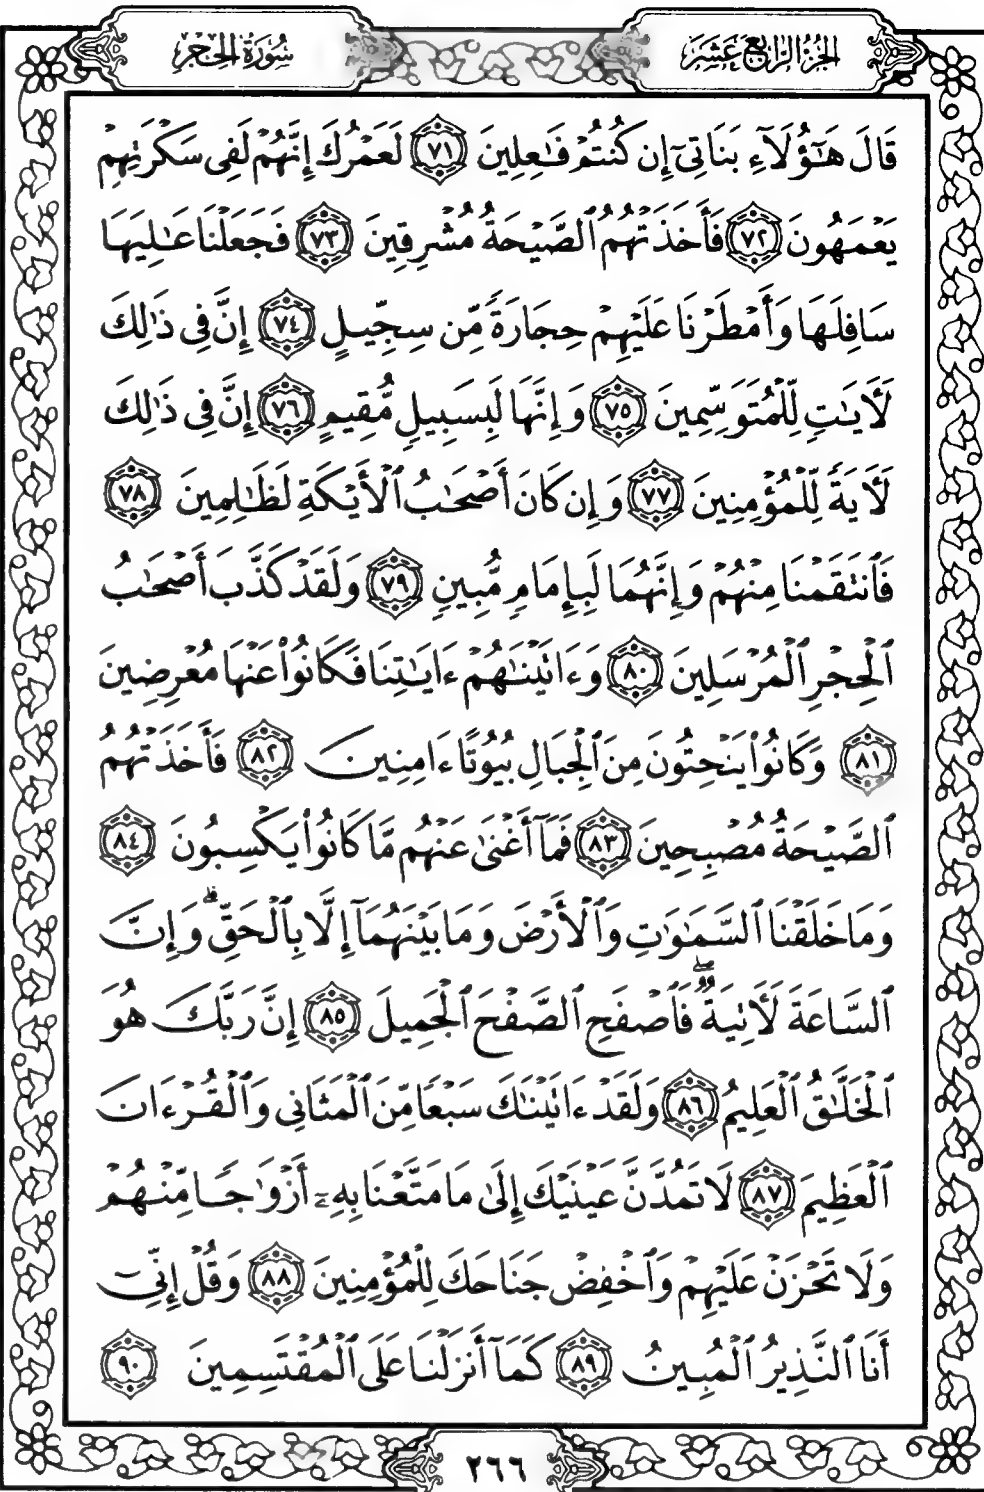 الجزء الرابع عشر
سورة الحجر
قَالَ هَٰٓؤُلَآءِ بَنَاتِىٓ إِن كُنتُمْ فَٰعِلِينَ ٧١ لَعَمْرُكَ إِنَّهُمْ لَفِى سَكْرَتِهِمْ
يَعْمَهُونَ ٧٢ فَأَخَذَتْهُمُ ٱلصَّيْحَةُ مُشْرِقِينَ ٧٣ فَجَعَلْنَا عَٰلِيَهَا
سَافِلَهَا وَأَمْطَرْنَا عَلَيْهِمْ حِجَارَةً مِّن سِجِّيلٍ ٧٤ إِنَّ فِى ذَٰلِكَ
لَأٓيَٰتٍ لِّلْمُتَوَسِّمِينَ ٧٥ وَإِنَّهَا لَبِسَبِيلٍ مُّقِيمٍ ٧٦ إِنَّ فِى ذَٰلِكَ
لَأٓيَةً لِّلْمُؤْمِنِينَ ٧٧ وَإِن كَانَ أَصْحَٰبُ ٱلْأَيْكَةِ لَظَٰلِمِينَ ٧٨
فَٱنتَقَمْنَا مِنْهُمْ وَإِنَّهُمَا لَبِإِمَامٍ مُّبِينٍ ٧٩ وَلَقَدْ كَذَّبَ أَصْحَٰبُ
ٱلْحِجْرِ ٱلْمُرْسَلِينَ ٨٠ وَءَاتَيْنَٰهُمْ ءَايَٰتِنَا فَكَانُوا۟ عَنْهَا مُعْرِضِينَ
٨١ وَكَانُوا۟ يَنْحِتُونَ مِنَ ٱلْجِبَالِ بُيُوتًا ءَامِنِينَ ٨٢ فَأَخَذَتْهُمُ
ٱلصَّيْحَةُ مُصْبِحِينَ ٨٣ فَمَآ أَغْنَىٰ عَنْهُم مَّا كَانُوا۟ يَكْسِبُونَ ٨٤
وَمَا خَلَقْنَا ٱلسَّمَٰوَٰتِ وَٱلْأَرْضَ وَمَا بَيْنَهُمَآ إِلَّا بِٱلْحَقِّ ۗ وَإِنَّ
ٱلسَّاعَةَ لَأٓتِيَةٌ ۖ فَٱصْفَحِ ٱلصَّفْحَ ٱلْجَمِيلَ ٨٥ إِنَّ رَبَّكَ هُوَ
ٱلْخَلَّٰقُ ٱلْعَلِيمُ ٨٦ وَلَقَدْ ءَاتَيْنَٰكَ سَبْعًا مِّنَ ٱلْمَثَانِى وَٱلْقُرْءَانَ
ٱلْعَظِيمَ ٨٧ لَا تَمُدَّنَّ عَيْنَيْكَ إِلَىٰ مَا مَتَّعْنَا بِهِۦٓ أَزْوَٰجًا مِّنْهُمْ
وَلَا تَحْزَنْ عَلَيْهِمْ وَٱخْفِضْ جَنَاحَكَ لِلْمُؤْمِنِينَ ٨٨ وَقُلْ إِنِّىٓ
أَنَا ٱلنَّذِيرُ ٱلْمُبِينُ ٨٩ كَمَآ أَنزَلْنَا عَلَى ٱلْمُقْتَسِمِينَ ٩٠
٢٦٦